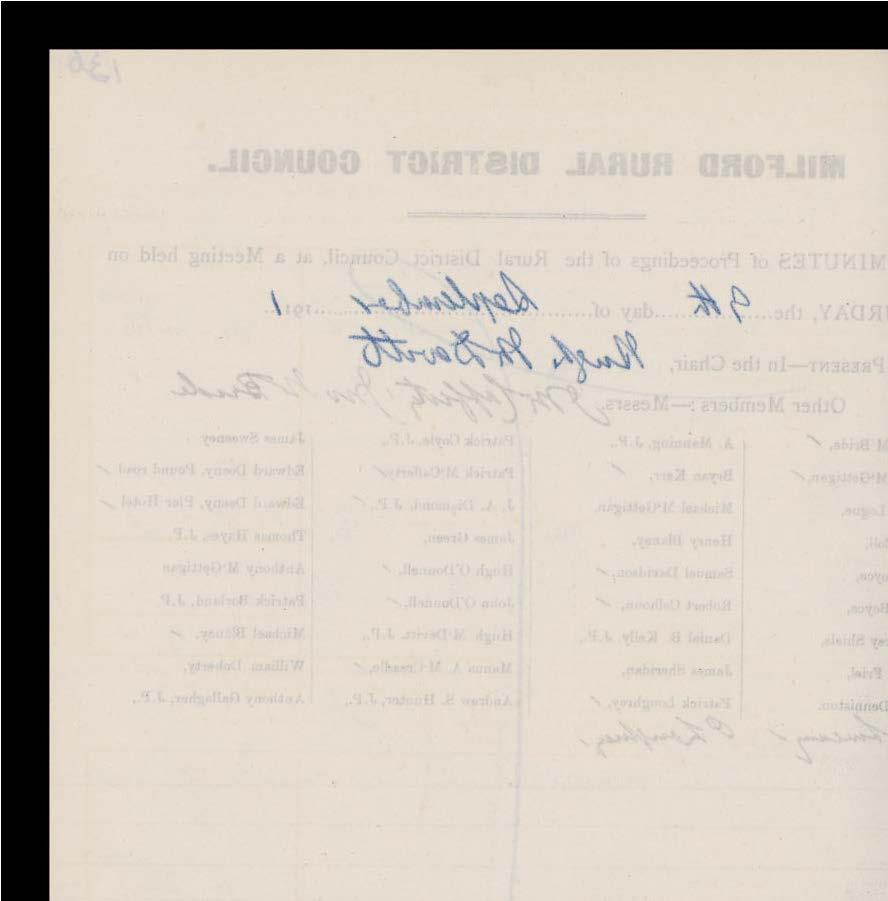 136
MILFORD RURAL DISTRICT COUNCIL.
MINUTES of Proceedings of the Rural District Council, at a Meeting held on
URDAY, the 9th day of September 1911
PRESENT—In the Chair, Hugh McDevitt
Other Members :—Messrs.
M'Bride, A. Manning, J.P., Patrick Coyle, J.P., James Sweeney
M'Gettigan, Bryan Kerr, Patrick M'Cafferty Edward Deeny, Pound road
Logue, Michael M'Gettigan, J. A. Diamond, J.P., Edward Deeny, Pier Hotel
Henry Blaney, James Green, Thomas Hayes, J.P.
oyce, Samuel Davidson, Hugh O'Donnell, Anthony M'Gettigan
Boyce, Robert Colhoun, John O'Donnell, Patrick Borland, J.P
ey Shiels, Daniel B. Kelly, J.P., Hugh M'Devitt, J.P., Michael Blaney,
Friel, James Sheridan, Manus A. M'Creadie, William Doherty,
Denniston. Patrick Loughrey, Andrew S. Hunter, J.P., Anthony Gallagher, J.P.,